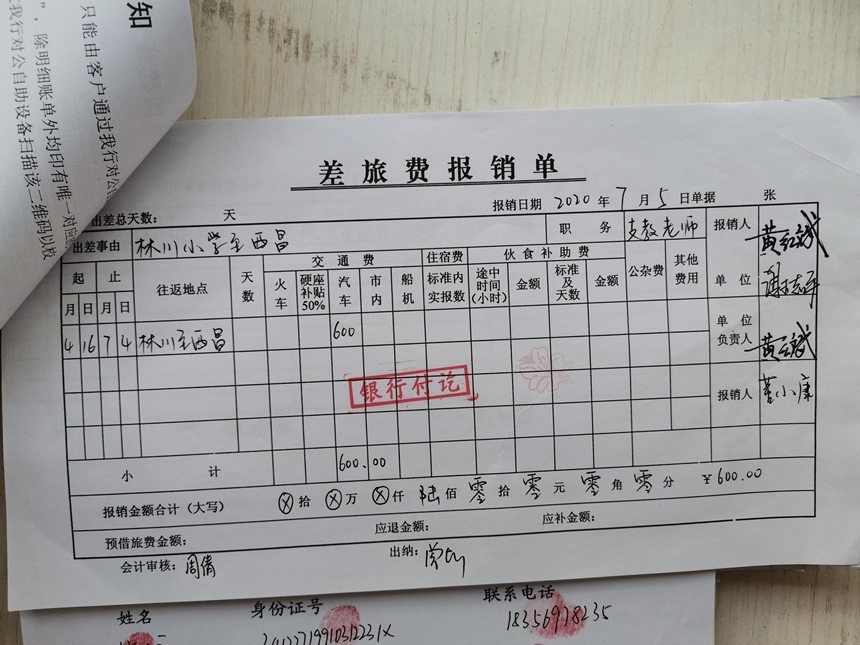 知
只能由客户通过我行对公
”，除明细账单外均印有唯一对应
我行对公自助设备扫描该二维码以校
差旅费报销单
报销日期 2020 年 7 月 5 日 单据 张
出差总天数： 天
出差事由 林川小学至西昌 职务 支教老师 报销人 黄红斌
起 止 往返地点 天数 交通费 住宿费 伙食补助费 公杂费 其他费用 单位
月 日 月 日 火车 硬座补贴50% 汽车 市内 船机 标准内实报数 途中时间(小时) 金额 标准及天数 金额
4 16 7 4 林川至西昌 600 单位负责人
银行付讫
报销人 董小康
小计 600.00
报销金额合计（大写） ⊗拾 ⊗万 ⊗仟 陆佰 零拾 零元 零角 零分 ￥600.00
预借旅费金额： 应退金额： 应补金额：
会计审核： 周倩 出纳：
姓名 身份证号 联系电话
18356978235